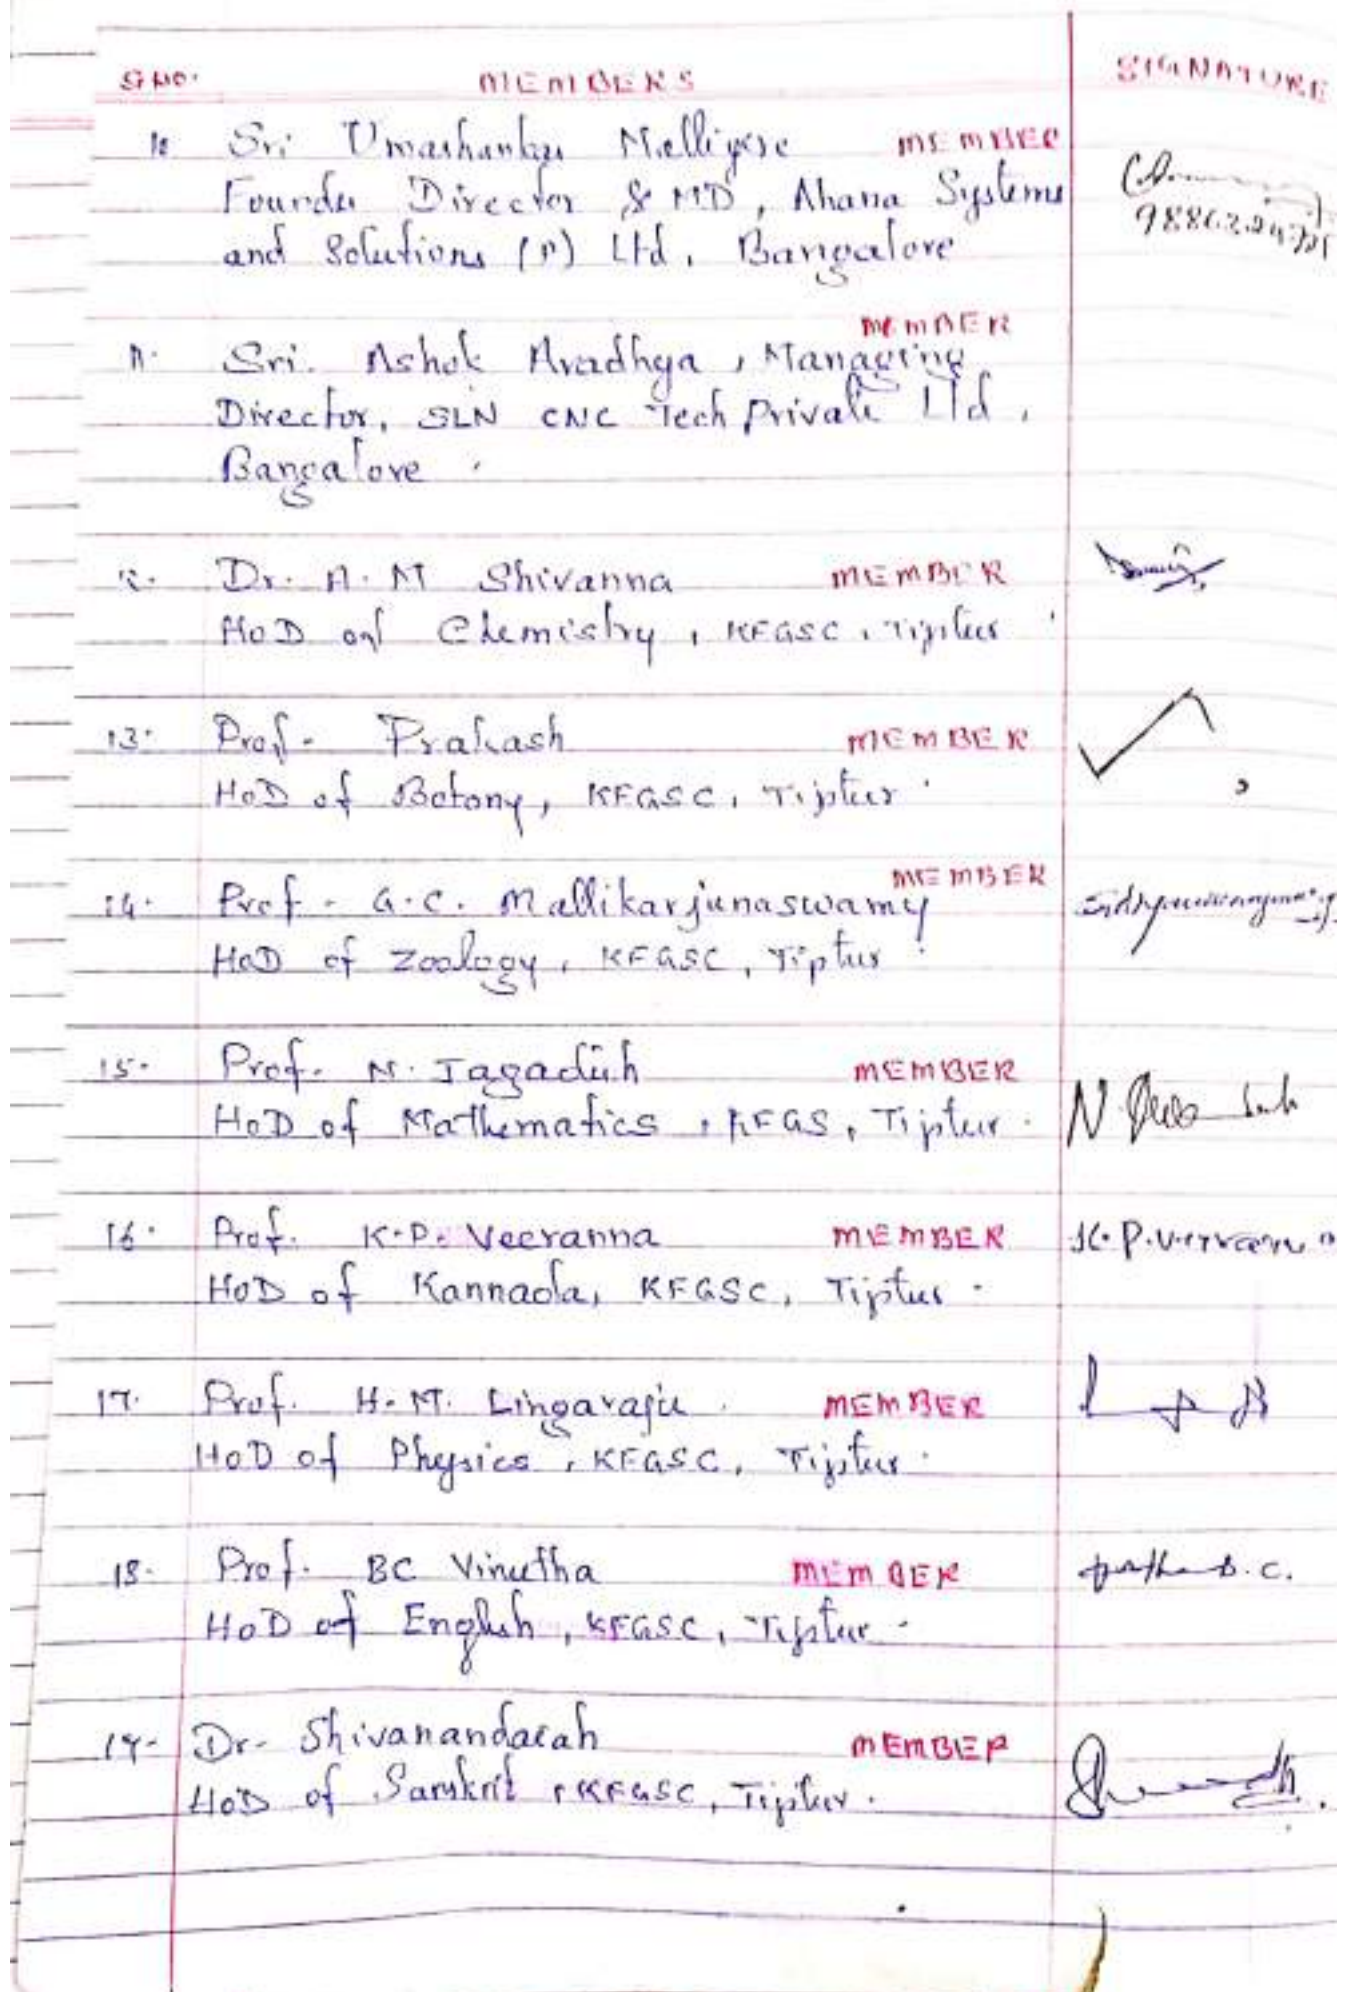 S.NO. MEMBERS SIGNATURE
10 Sri Umashankar Malligere MEMBER
Founder Director & MD, Ahana Systems
and Solutions (P) Ltd, Bangalore
MEMBER
11. Sri. Ashok Aradhya, Managing
Director, SLN CNC Tech Private Ltd,
Bangalore.
12. Dr. A.M Shivanna MEMBER
HoD of Chemistry, KFGSC, Tiptur.
13. Prof. Prakash MEMBER
HoD of Botony, KFGSC, Tiptur.
MEMBER
14. Prof. G.C. Mallikarjunaswamy
HoD of Zoology, KFGSC, Tiptur.
15. Prof. N. Jagadish MEMBER
HoD of Mathematics, KFGS, Tiptur.
16. Prof. K.P. Veeranna MEMBER K.P.Veeranna
HoD of Kannada, KFGSC, Tiptur.
17. Prof. H.M. Lingaraju. MEMBER
HoD of Physics, KFGSC, Tiptur.
18. Prof. BC Vinutha MEMBER B.C.
HoD of English, KFGSC, Tiptur.
19. Dr. Shivanandaiah MEMBER
HoD of Sanskrit, KFGSC, Tiptur.